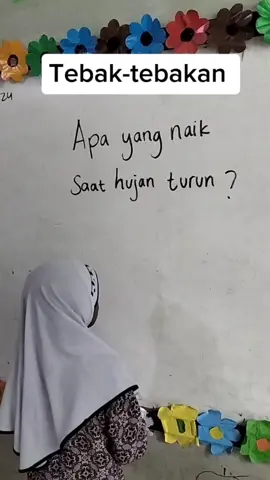 Tebak-tebakan
24
Apa yang naik
saat hujan turun ?